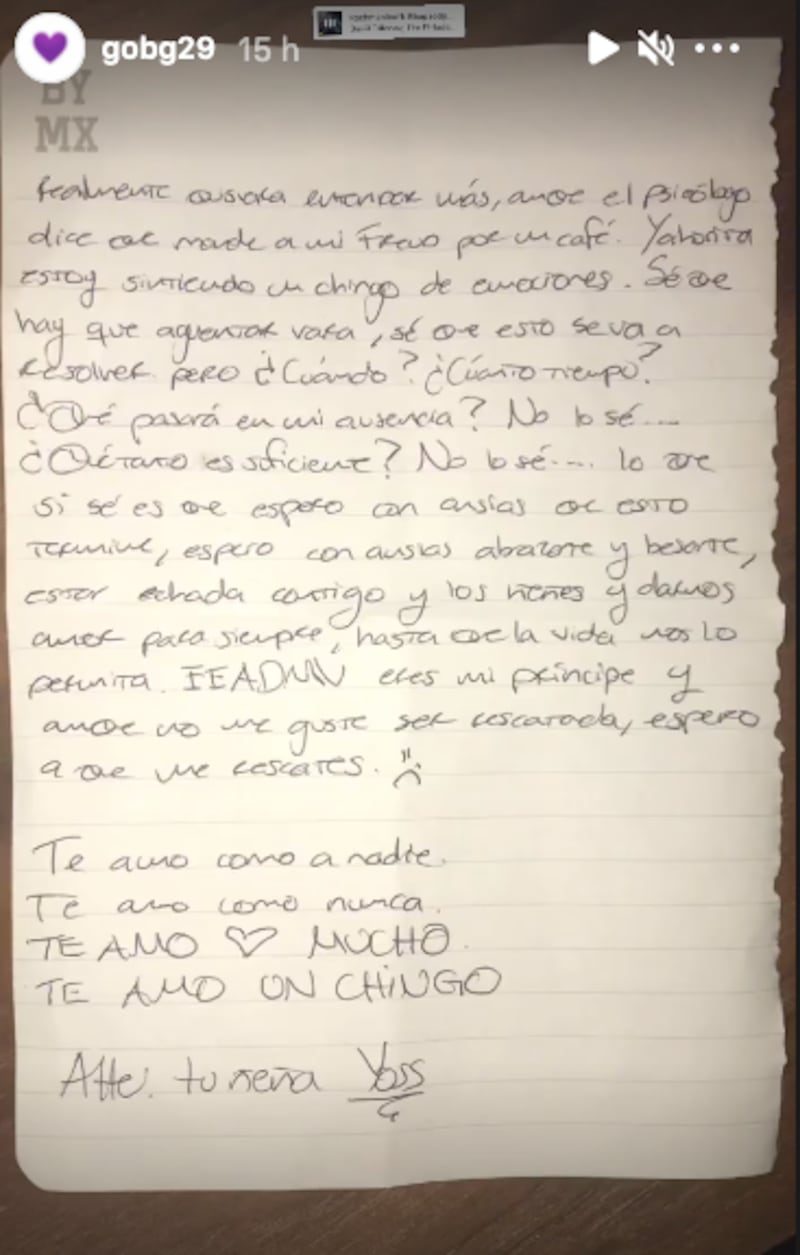 gobg29 15 h
BY
MX
Realmente quisiera entender más, aunque el psicólogo
dice que mande a mi Freud por un café. Y ahorita
estoy sintiendo un chingo de emociones. Sé que
hay que aguentar vara, sé que esto se va a
resolver pero ¿Cuándo? ¿Cúanto tiempo?
¿Qué pasará en mi ausencia? No lo sé....
¿Qué tanto es suficiente? No lo sé.... lo que
si sé es que espero con ansías que esto
termine, espero con ansias abrazarte y besarte,
estar echada contigo y los nenes y darnos
amor para siempre, hasta que la vida nos lo
permita. eres mi príncipe y
aunque no me guste ser rescatada, espero
a que me rescates.
Te amo como a nadie.
Te amo como nunca.
TE AMO ♡ MUCHO.
TE AMO UN CHINGO
Atte. tu nena Yoss